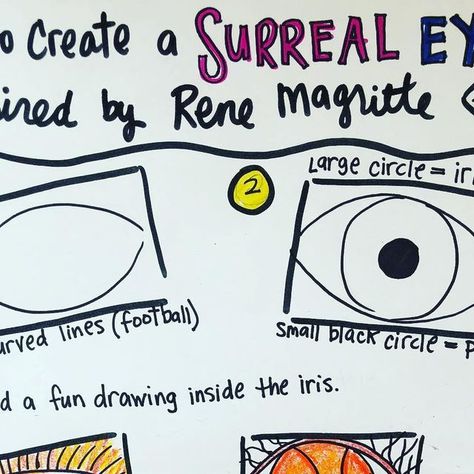 o Create a SURREAL EY
ired by Rene Magritte
2
Large circle = iri
urved lines (football)
Small black circle = P
d a fun drawing inside the iris.